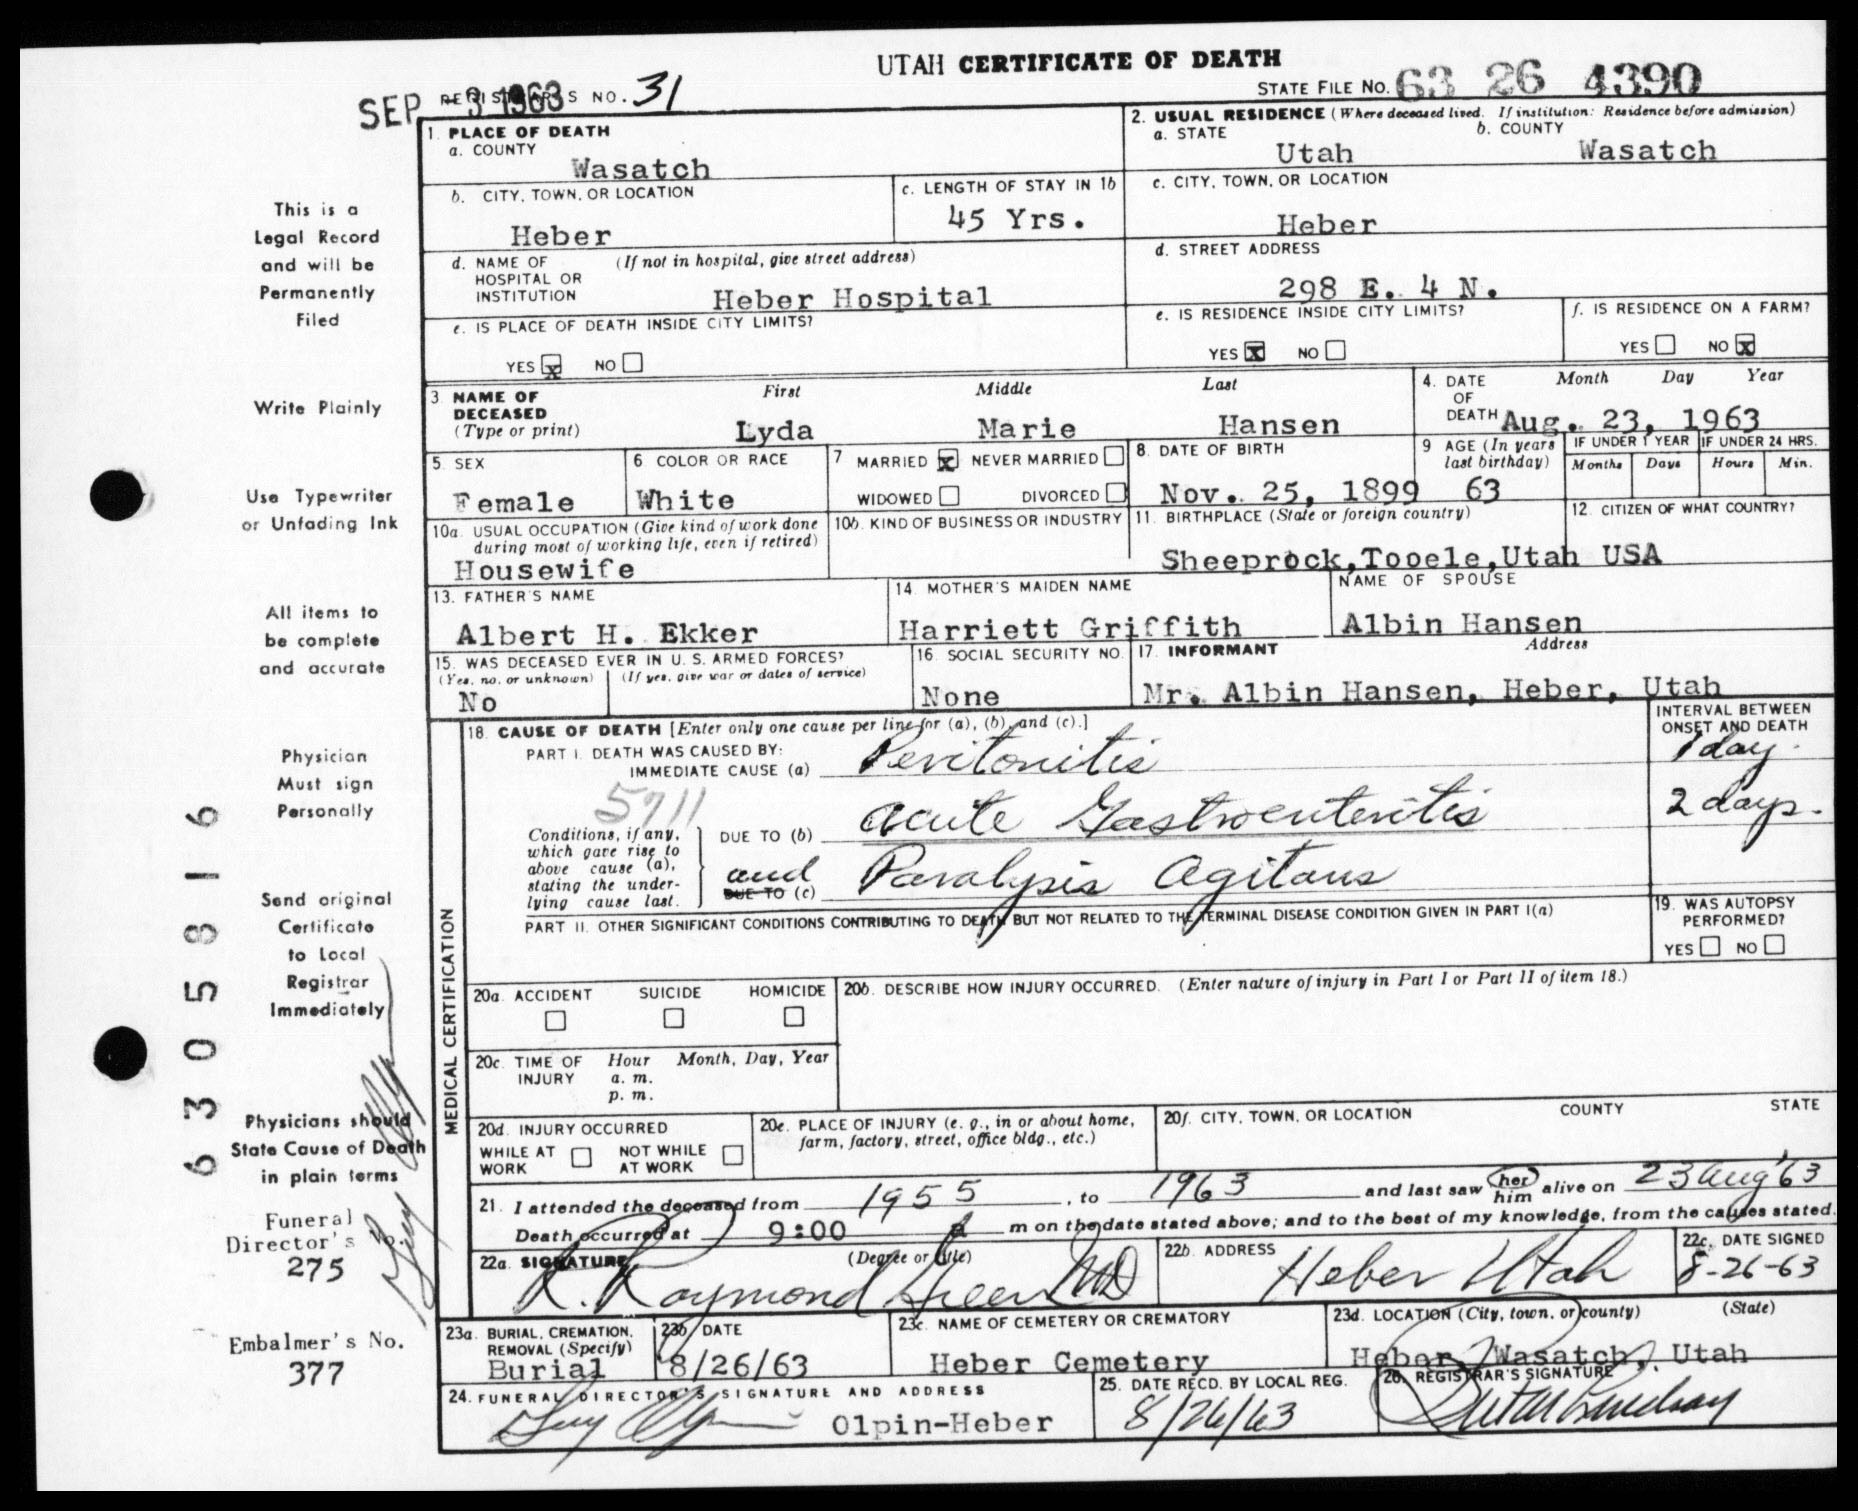 UTAH CERTIFICATE OF DEATH
SEP -3 1963 REGISTRAR'S NO. 31
STATE FILE NO. 63 26 4390
1. PLACE OF DEATH
a. COUNTY
Wasatch
2. USUAL RESIDENCE (Where deceased lived. If institution: Residence before admission)
a. STATE b. COUNTY
Utah Wasatch
b. CITY, TOWN, OR LOCATION
Heber
c. LENGTH OF STAY IN 1b
45 Yrs.
c. CITY, TOWN, OR LOCATION
Heber
d. NAME OF HOSPITAL OR INSTITUTION (If not in hospital, give street address)
Heber Hospital
d. STREET ADDRESS
298 E. 4 N.
e. IS PLACE OF DEATH INSIDE CITY LIMITS?
YES x NO
e. IS RESIDENCE INSIDE CITY LIMITS?
YES x NO
f. IS RESIDENCE ON A FARM?
YES NO x
3. NAME OF DECEASED (Type or print)
First Middle Last
Lyda Marie Hansen
4. DATE OF DEATH Month Day Year
Aug. 23, 1963
5. SEX
Female
6 COLOR OR RACE
White
7 MARRIED x NEVER MARRIED
WIDOWED DIVORCED
8. DATE OF BIRTH
Nov. 25, 1899
9 AGE (In years last birthday)
63
IF UNDER 1 YEAR IF UNDER 24 HRS.
Months Days Hours Min.
10a. USUAL OCCUPATION (Give kind of work done during most of working life, even if retired)
Housewife
10b. KIND OF BUSINESS OR INDUSTRY
11. BIRTHPLACE (State or foreign country)
Sheeprock,Tooele,Utah
12. CITIZEN OF WHAT COUNTRY?
USA
13. FATHER'S NAME
Albert H. Ekker
14. MOTHER'S MAIDEN NAME
Harriett Griffith
NAME OF SPOUSE
Albin Hansen
15. WAS DECEASED EVER IN U. S. ARMED FORCES?
(Yes, no, or unknown) (If yes, give war or dates of service)
No
16. SOCIAL SECURITY NO.
None
17. INFORMANT Address
Mr. Albin Hansen, Heber, Utah
MEDICAL CERTIFICATION
18. CAUSE OF DEATH [Enter only one cause per line for (a), (b), and (c).]
INTERVAL BETWEEN ONSET AND DEATH
PART I. DEATH WAS CAUSED BY:
IMMEDIATE CAUSE (a) Peritonitis 1 day.
5711
Conditions, if any, which gave rise to above cause (a), stating the underlying cause last.
DUE TO (b) acute Gastroenteritis 2 days.
and DUE TO (c) Paralysis Agitans
PART II. OTHER SIGNIFICANT CONDITIONS CONTRIBUTING TO DEATH BUT NOT RELATED TO THE TERMINAL DISEASE CONDITION GIVEN IN PART I(a)
19. WAS AUTOPSY PERFORMED?
YES NO
20a. ACCIDENT SUICIDE HOMICIDE
20b. DESCRIBE HOW INJURY OCCURRED. (Enter nature of injury in Part I or Part II of item 18.)
20c. TIME OF INJURY Hour Month, Day, Year
a. m.
p. m.
20d. INJURY OCCURRED
WHILE AT WORK NOT WHILE AT WORK
20e. PLACE OF INJURY (e. g., in or about home, farm, factory, street, office bldg., etc.)
20f. CITY, TOWN, OR LOCATION COUNTY STATE
21. I attended the deceased from 1955, to 1963 and last saw her him alive on 23 Aug '63
Death occurred at 9:00 a m on the date stated above; and to the best of my knowledge, from the causes stated.
22a. SIGNATURE (Degree or title)
R. Raymond Green MD
22b. ADDRESS
Heber Utah
22c. DATE SIGNED
8-26-63
23a. BURIAL, CREMATION, REMOVAL (Specify)
Burial
23b. DATE
8/26/63
23c. NAME OF CEMETERY OR CREMATORY
Heber Cemetery
23d. LOCATION (City, town, or county) (State)
Heber, Wasatch, Utah
24. FUNERAL DIRECTOR'S SIGNATURE AND ADDRESS
Olpin-Heber
25. DATE RECD. BY LOCAL REG.
8/26/63
26. REGISTRAR'S SIGNATURE
Lindsay
This is a
Legal Record
and will be
Permanently
Filed
Write Plainly
Use Typewriter
or Unfading Ink
All items to
be complete
and accurate
Physician
Must sign
Personally
Send original
Certificate
to Local
Registrar
Immediately
Physicians should
State Cause of Death
in plain terms
Funeral
Director's No.
275
Embalmer's No.
377
6305816